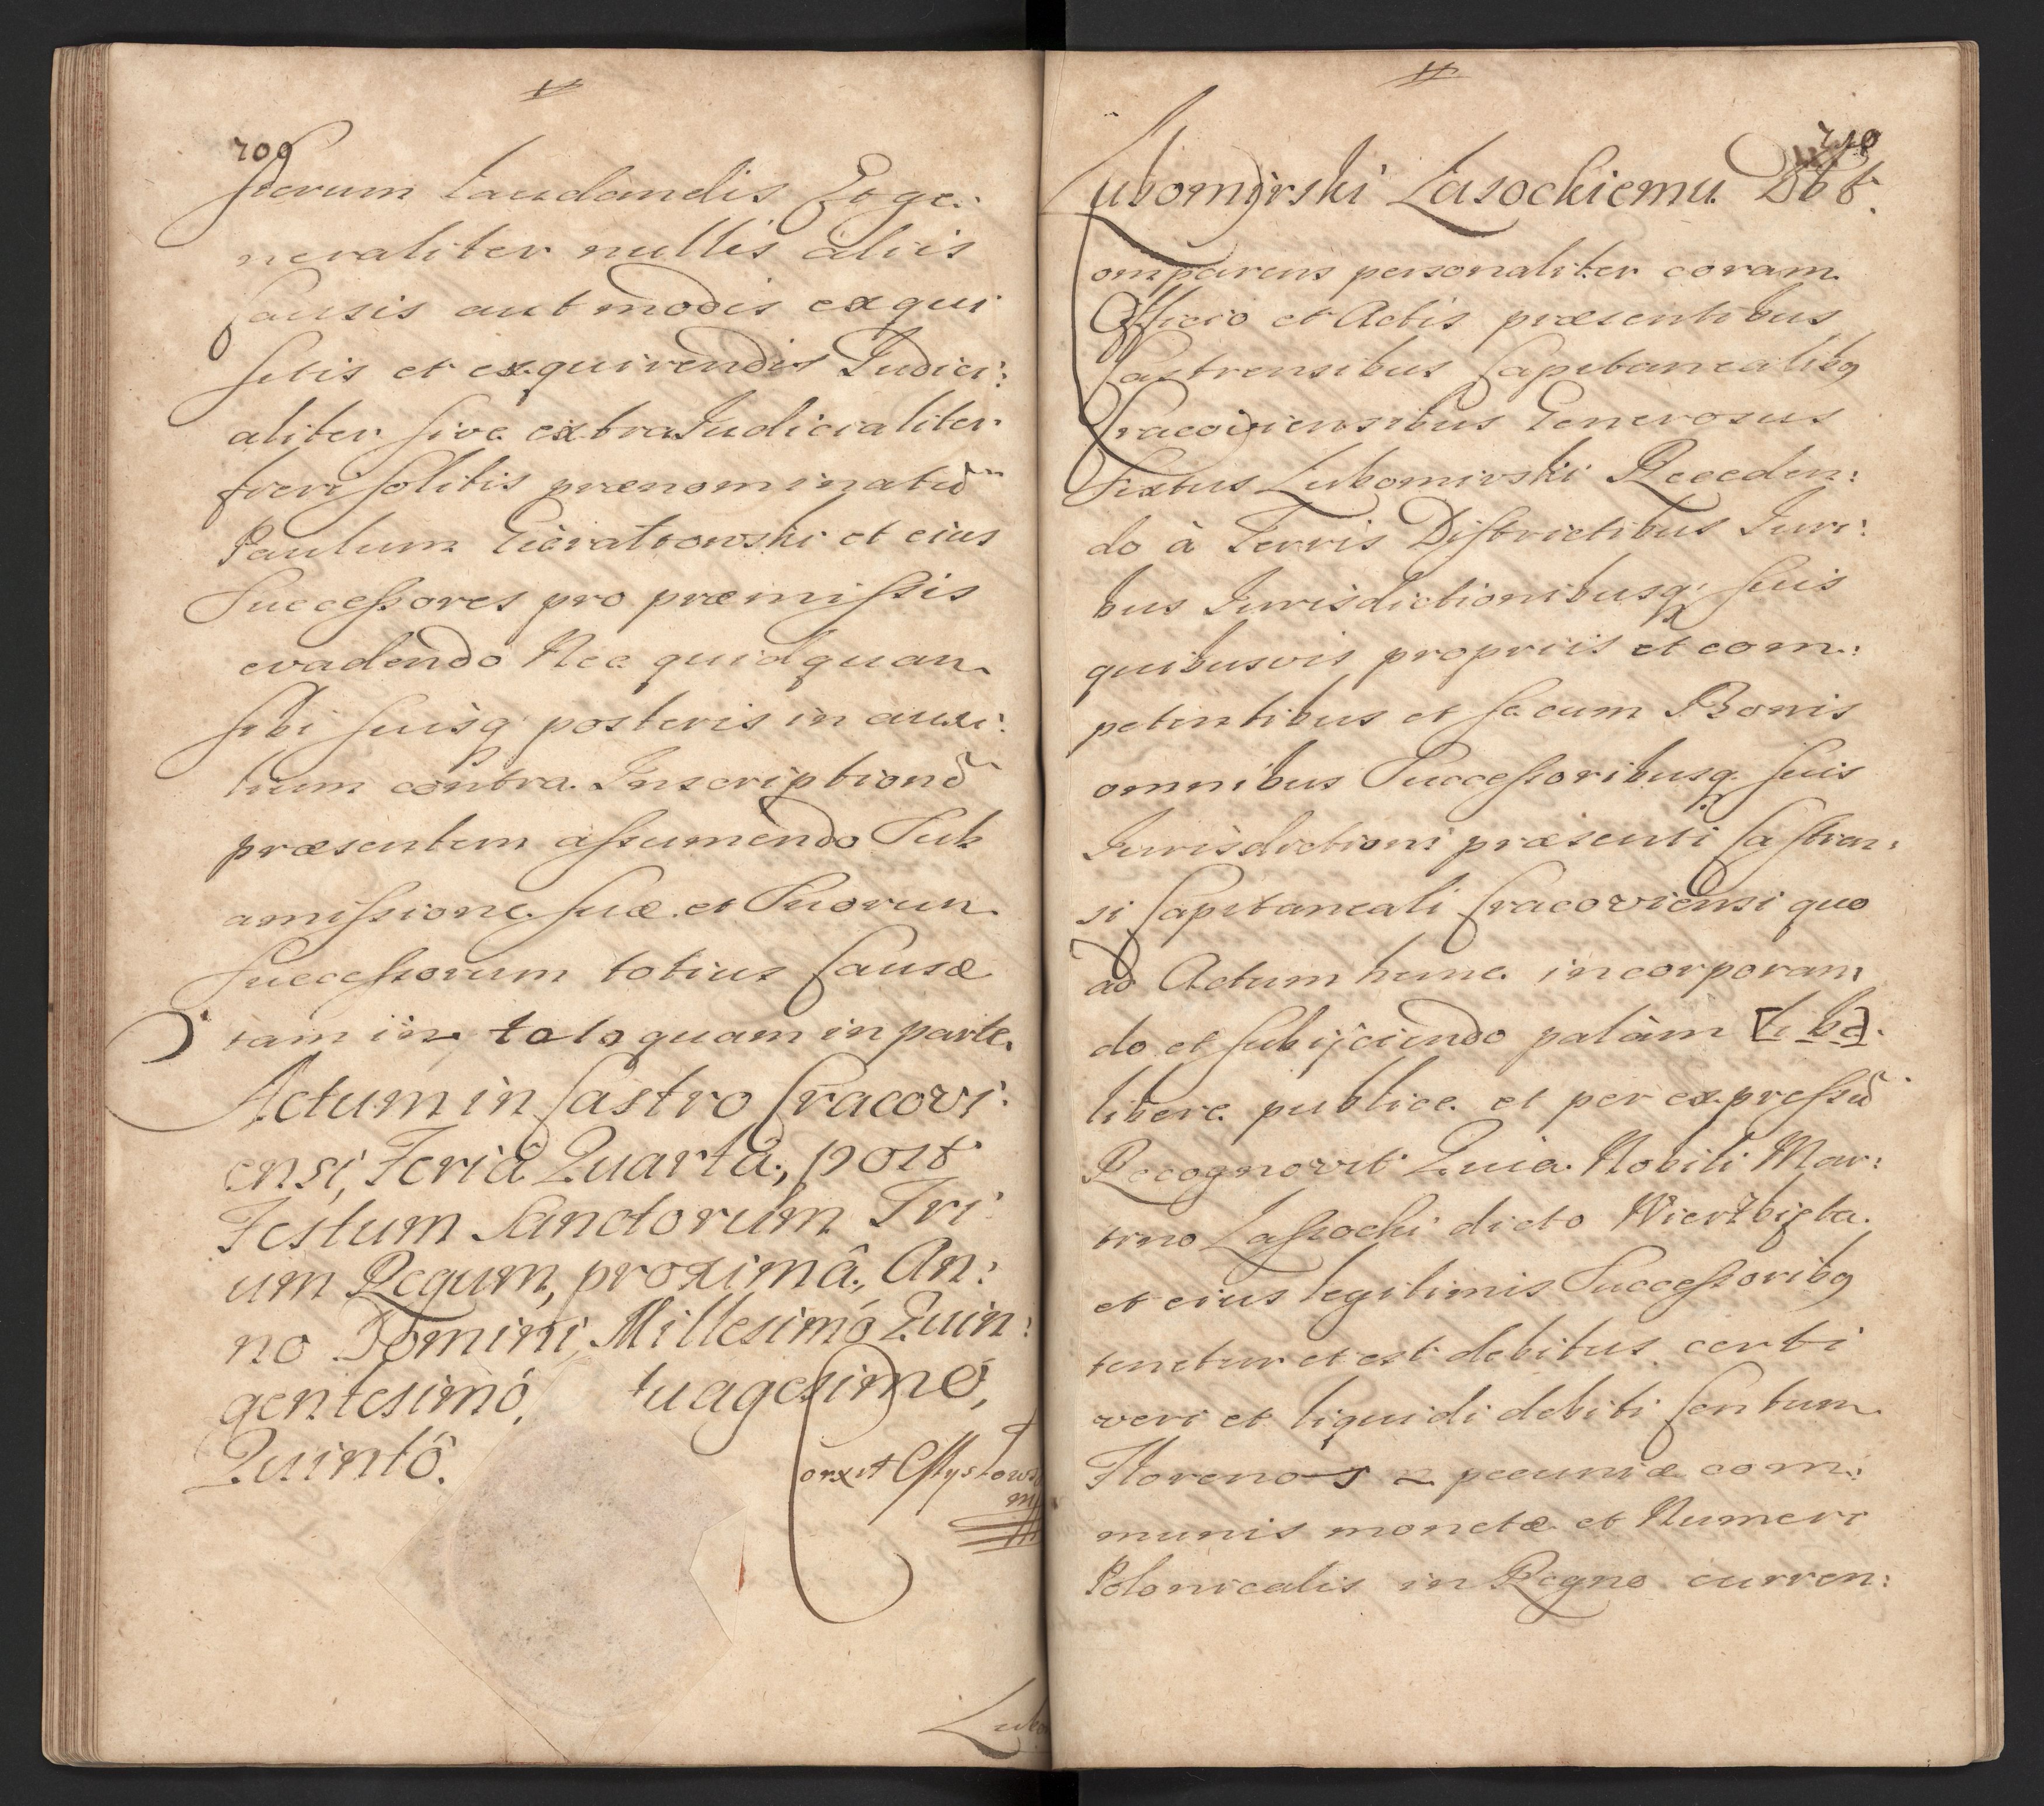 709
suorum laudandis Et ge:
neraliter nullis aliis
Causis aut modis exqui
sitis et exquirendis Judici:
aliter sive extraJudicialiter
fieri solitis prænominatũ
Paulum Gieraltowski et eius
Successores pro præmissis
evadendo Nec quidquam
sibi suisq posteris in auxi:
lium contra Inscriptionẽ
præsentem assumendo Sub
amissione suæ et Suorum
Successorum totius Causæ
tam in toto quam in parte.
Actum in Castro Cracovi:
ensi, Feria Quarta, post
Festum Sanctorum Tri:
um Regum, proximâ, An:
no Domini, Millesimó Quin:
gentesimó, tuagesimó,
Quintó.
Corxit
mp
Lubo
710
Lubomirski Lasockiemu Dbt.
Comparens personaliter coram
Officio et Actis præsentibus
Castrensibus Capitanealibq
Cracoviensibus Generosus
Sixtus Lubomirski Receden:
do à Terris Districtibus Juri:
bus Jurisdictionibusq suis
quibusvis propriis et com:
petentibus et se cum Bonis
omnibus Successoribusq suis
Jurisdictioni præsenti Castren:
si Capitaneali Cracoviensi quo
ad Actum hunc incorporan:
do et subijciendo palàm
libere publice et per expressũ
Recognovit Quia Nobili Mar:
tino Lassocki dicto Wierzbięta
et eius legitimis Successoribq
tenetur et est debitus certi
veri et liquidi debiti Centum
Florenos pecuniæ com:
munis monetæ et Numeri
Polonicalis in Regno curren: